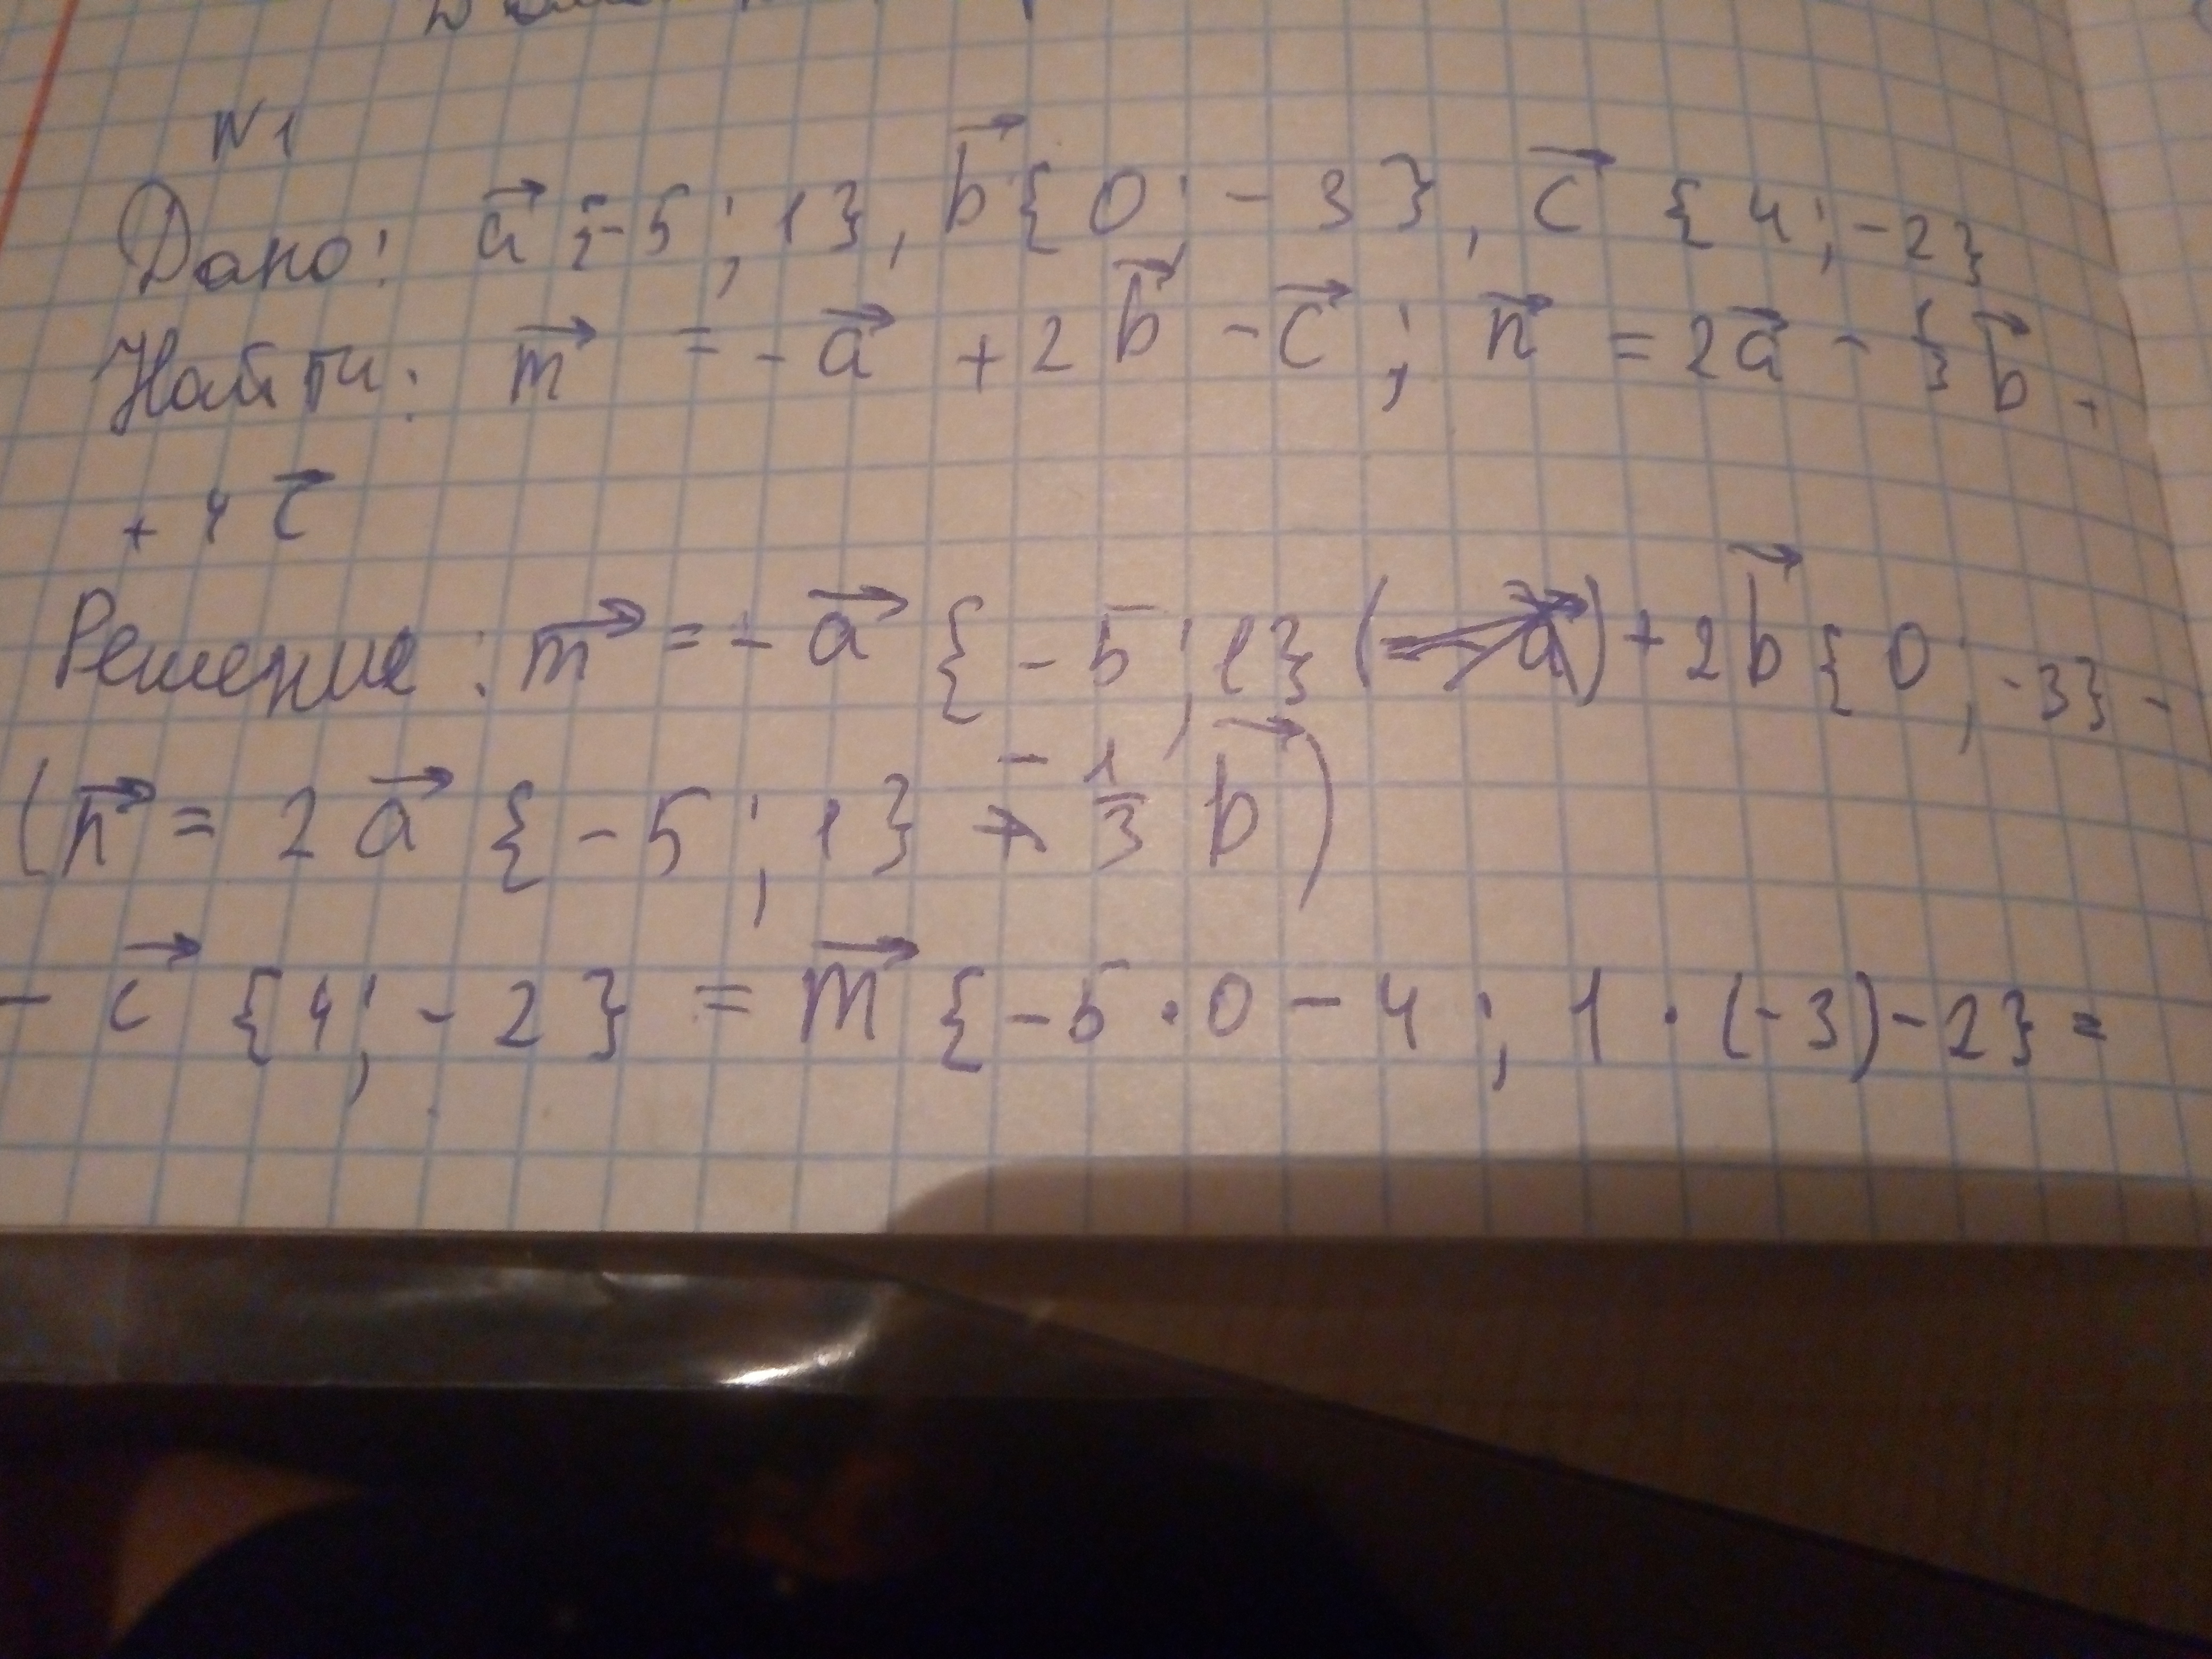 N 1
Дано: a⃗ {-5; 1}, b⃗ {0; -3}, c⃗ {4; -2}
Найти: m⃗ = -a⃗ + 2b⃗ - c⃗; n⃗ = 2a⃗ - 1/3 b⃗ +
+ 4c⃗
Решение: m⃗ = -a⃗ {-5; 1} (- a⃗) + 2b⃗ {0; -3} -
(n⃗ = 2a⃗ {-5; 1} - 1/3 b⃗)
- c⃗ {4; -2} = m⃗ {-5 · 0 - 4; 1 · (-3) - 2} =